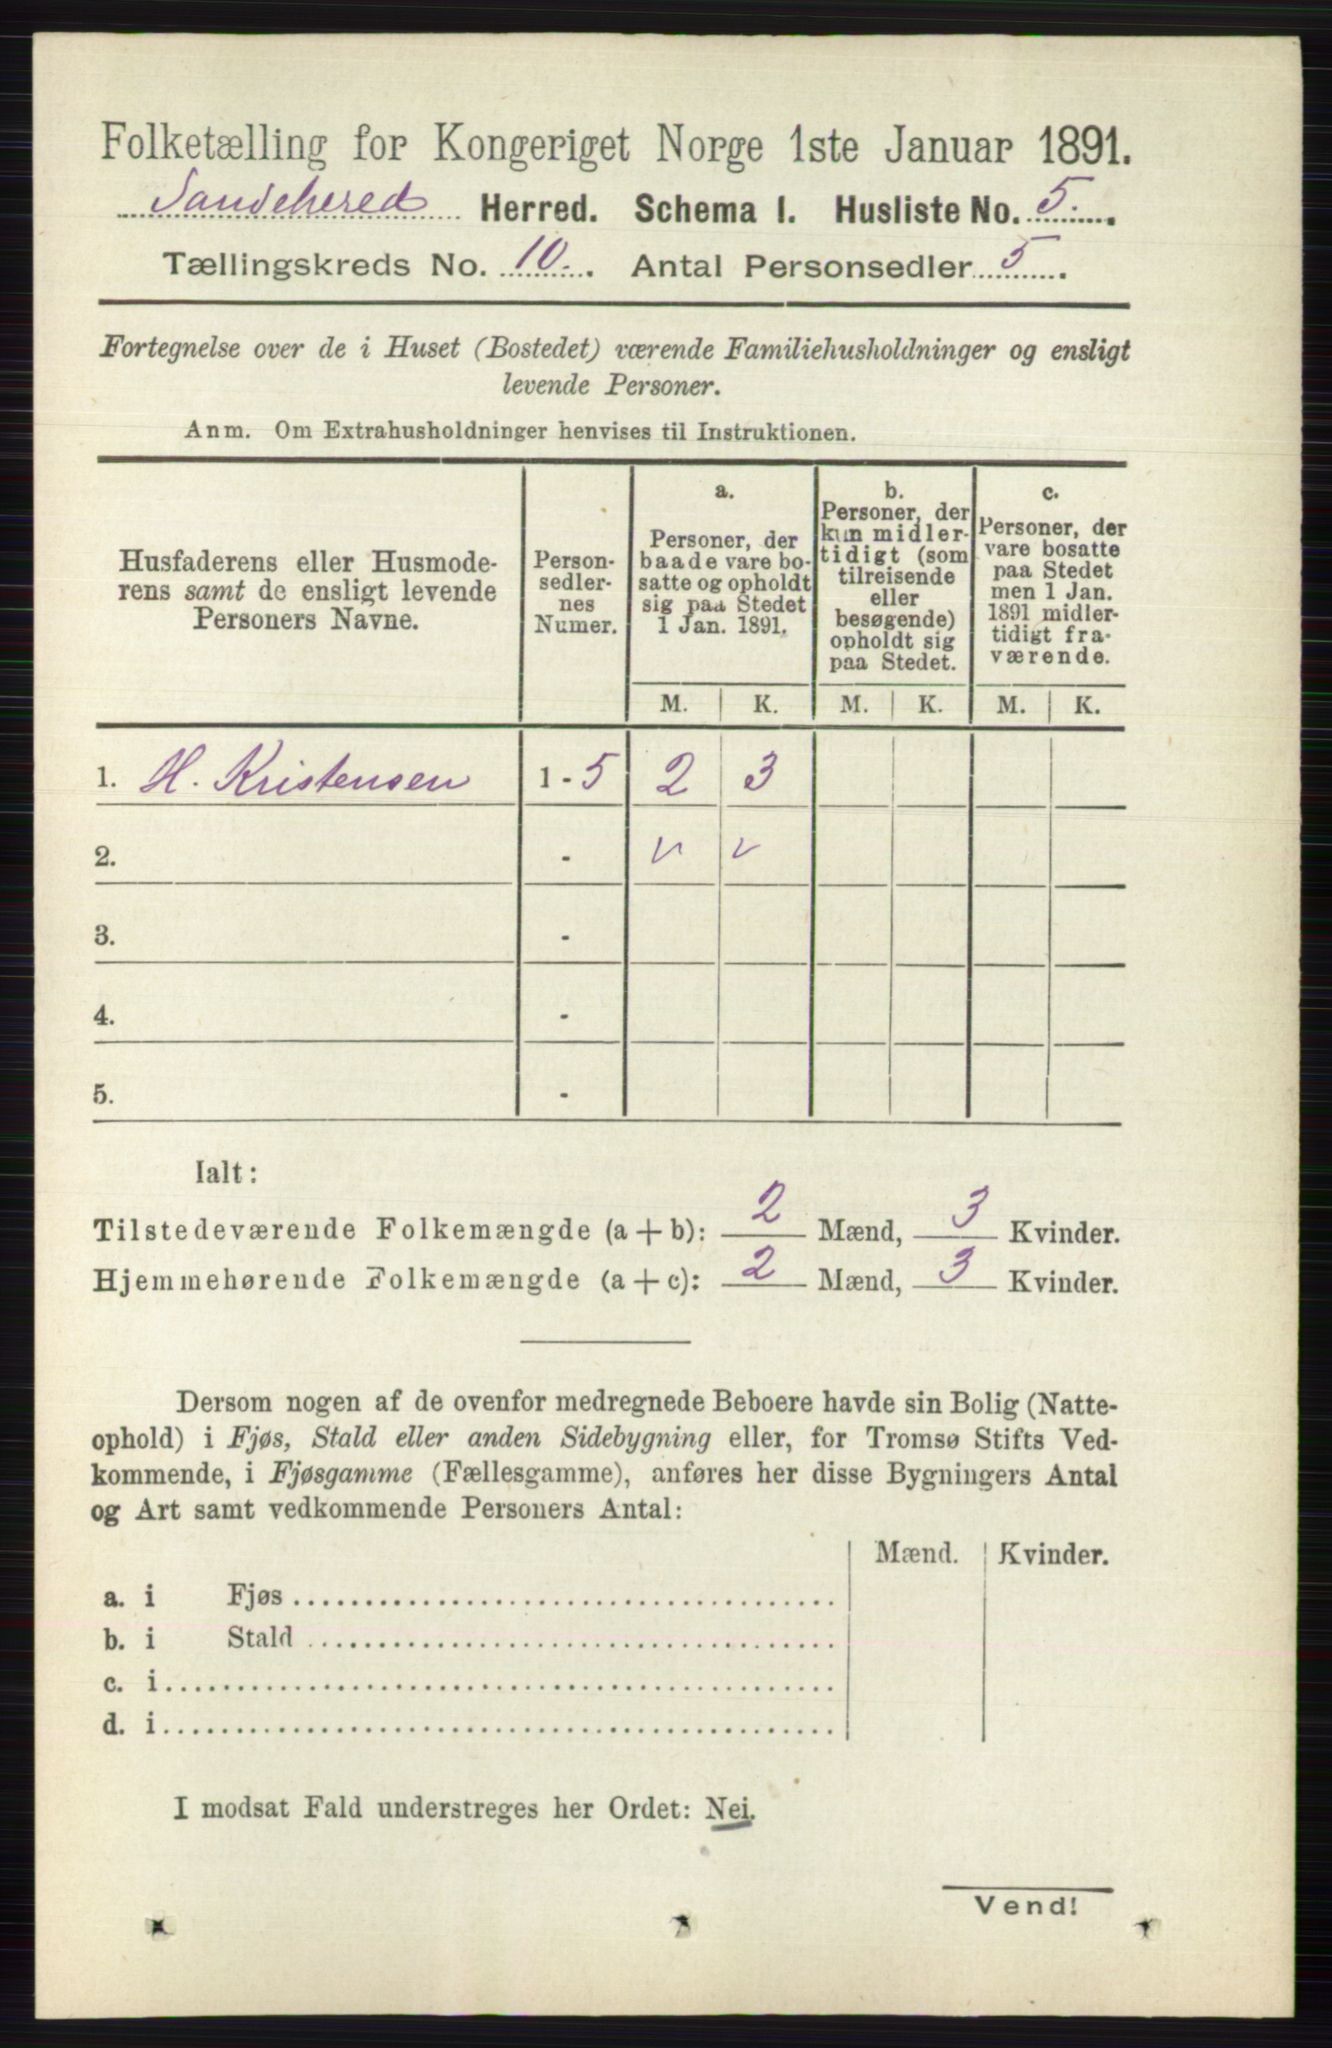 Folketælling for Kongeriget Norge 1ste Januar 1891.
Sandehered Herred. Schema I. Husliste No. 5.
Tællingskreds No. 10. Antal Personsedler 5.
Fortegnelse over de i Huset (Bostedet) værende Familiehusholdninger og ensligt
levende Personer.
Anm. Om Extrahusholdninger henvises til Instruktionen.
Husfaderens eller Husmode-
rens samt de ensligt levende
Personers Navne.
Person-
sedler-
nes
Numer.
a.
Personer, der
baade vare bo-
satte og opholdt
sig paa Stedet
1 Jan. 1891.
b.
Personer, der
kun midler-
tidigt (som
tilreisende
eller
besøgende)
opholdt sig
paa Stedet.
c.
Personer, der
vare bosatte
paa Stedet
men 1 Jan.
1891 midler-
tidigt fra-
værende.
M. K. M. K. M. K.
1. H. Kristensen 1 - 5 2 3
2. -
3. -
4. -
5. -
Ialt:
Tilstedeværende Folkemængde (a + b): 2 Mænd, 3 Kvinder.
Hjemmehørende Folkemængde (a + c): 2 Mænd, 3 Kvinder.
Dersom nogen af de ovenfor medregnede Beboere havde sin Bolig (Natte-
ophold) i Fjøs, Stald eller anden Sidebygning eller, for Tromsø Stifts Ved-
kommende, i Fjøsgamme (Fællesgamme), anføres her disse Bygningers Antal
og Art samt vedkommende Personers Antal:
Mænd. Kvinder.
a. i Fjøs
b. i Stald
c. i
d. i
I modsat Fald understreges her Ordet: Nei.
Vend!